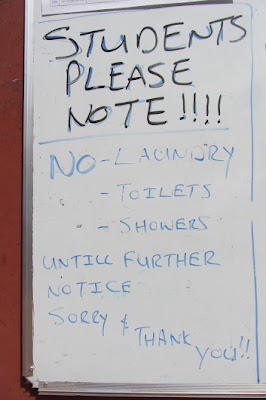 STUDENTS
PLEASE
NOTE!!!!
NO - LAUNDRY
- TOILETS
- SHOWERS
UNTILL FURTHER
NOTICE
SORRY & THANK YOU!!